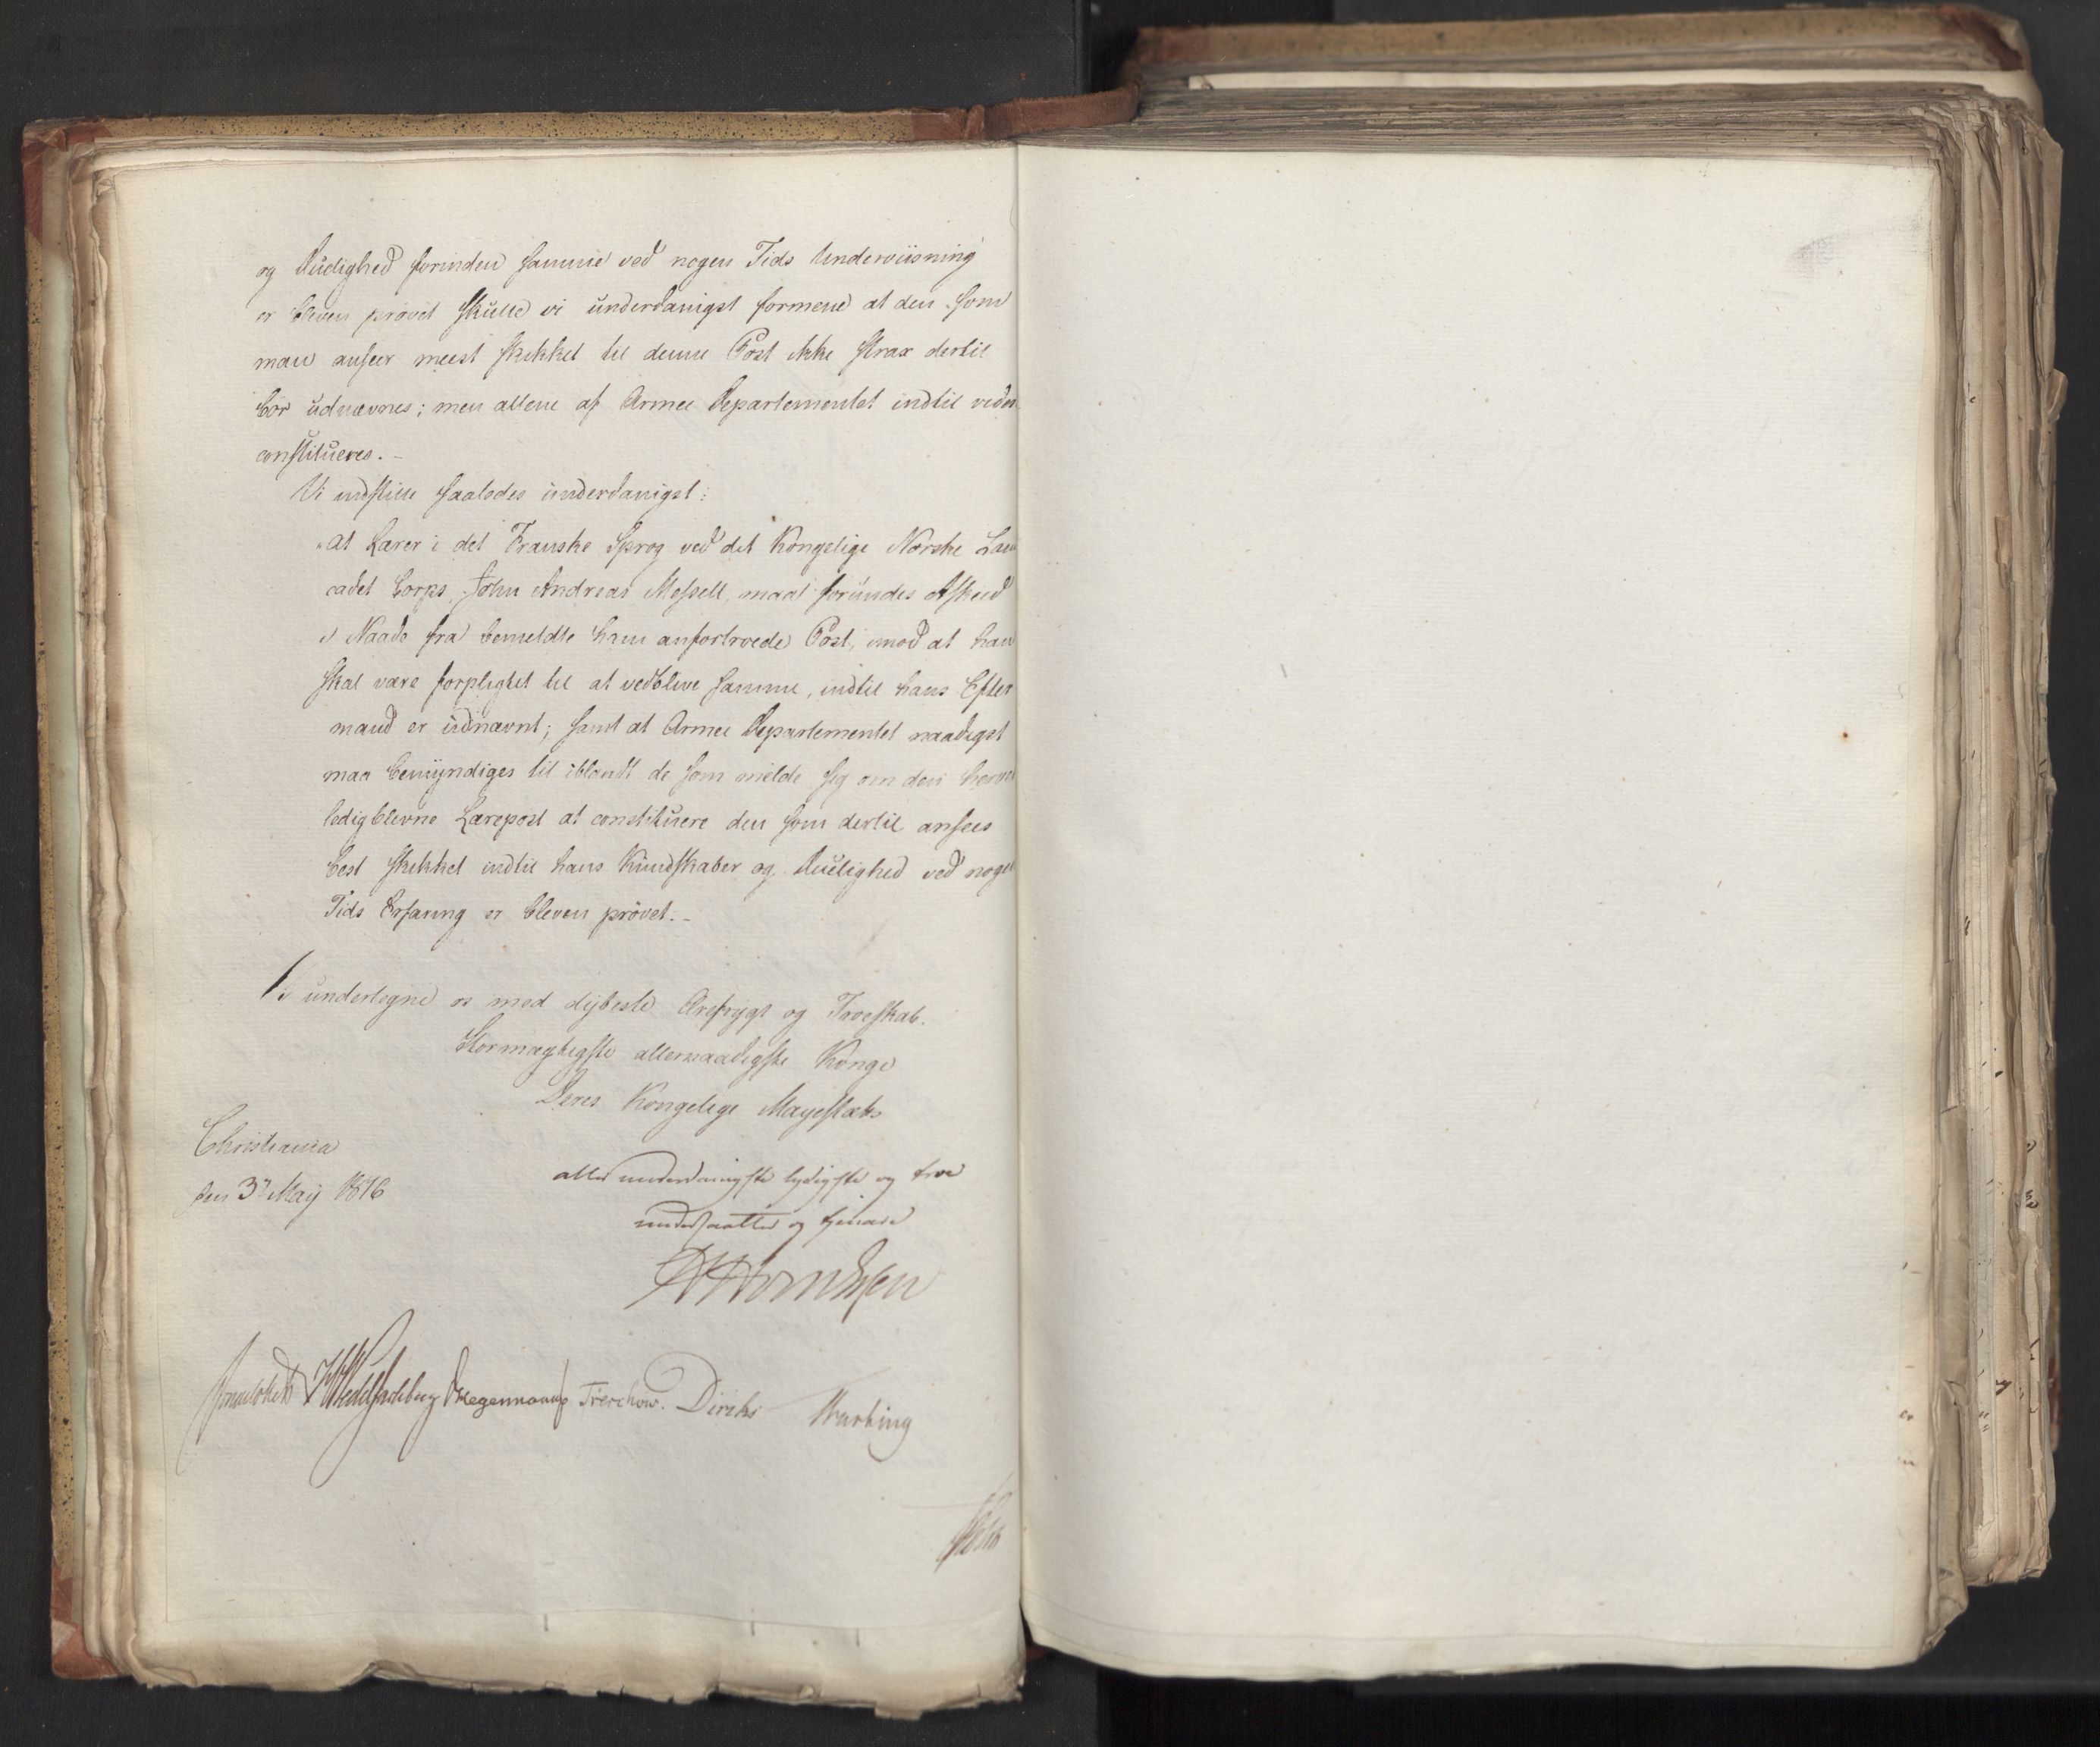 og Duelighed forinden samme ved nogen Tids Underviisning
er bleven prövet skulle vi underdanigst formene at den som
man anseer meest skikket til denne Post ikke strax dertil
bör udnævnes; men allene af Armee Departementet indtil videre
constitueres. –
Vi indstille saaledes underdanigst:
"At Lærer i det Franske Sprog ved det Kongelige Norske Land
cadet Corps, John Andreas Messell, maae forundes Afskeed
i Naade fra bemeldte ham anfortroede Post, imod at han
skal være forpligtet til at vedblive samme, indtil hans Efter
mand er udnævnt; samt at Armee Departementet naadigst
maa bemyndiges til iblandt de som melde sig om den
ledigblevne Lærepost at constituere den som dertil ansees
best skikket indtil hans Kundskaber og Duelighed ved nogen
Tids Erfaring er bleven prövet. –
Vi undertegne os med dybeste Ærefrygt og Troeskab.
Stormægtigste allernaadigste Konge
Deres Kongelige Mayestæts
Christiania
den 3die May 1816
allerunderdanigste lydigste og troe
undersaatter og tjenere
Thomsen
WedelJarlsberg Hegermann Treschow. Diriks